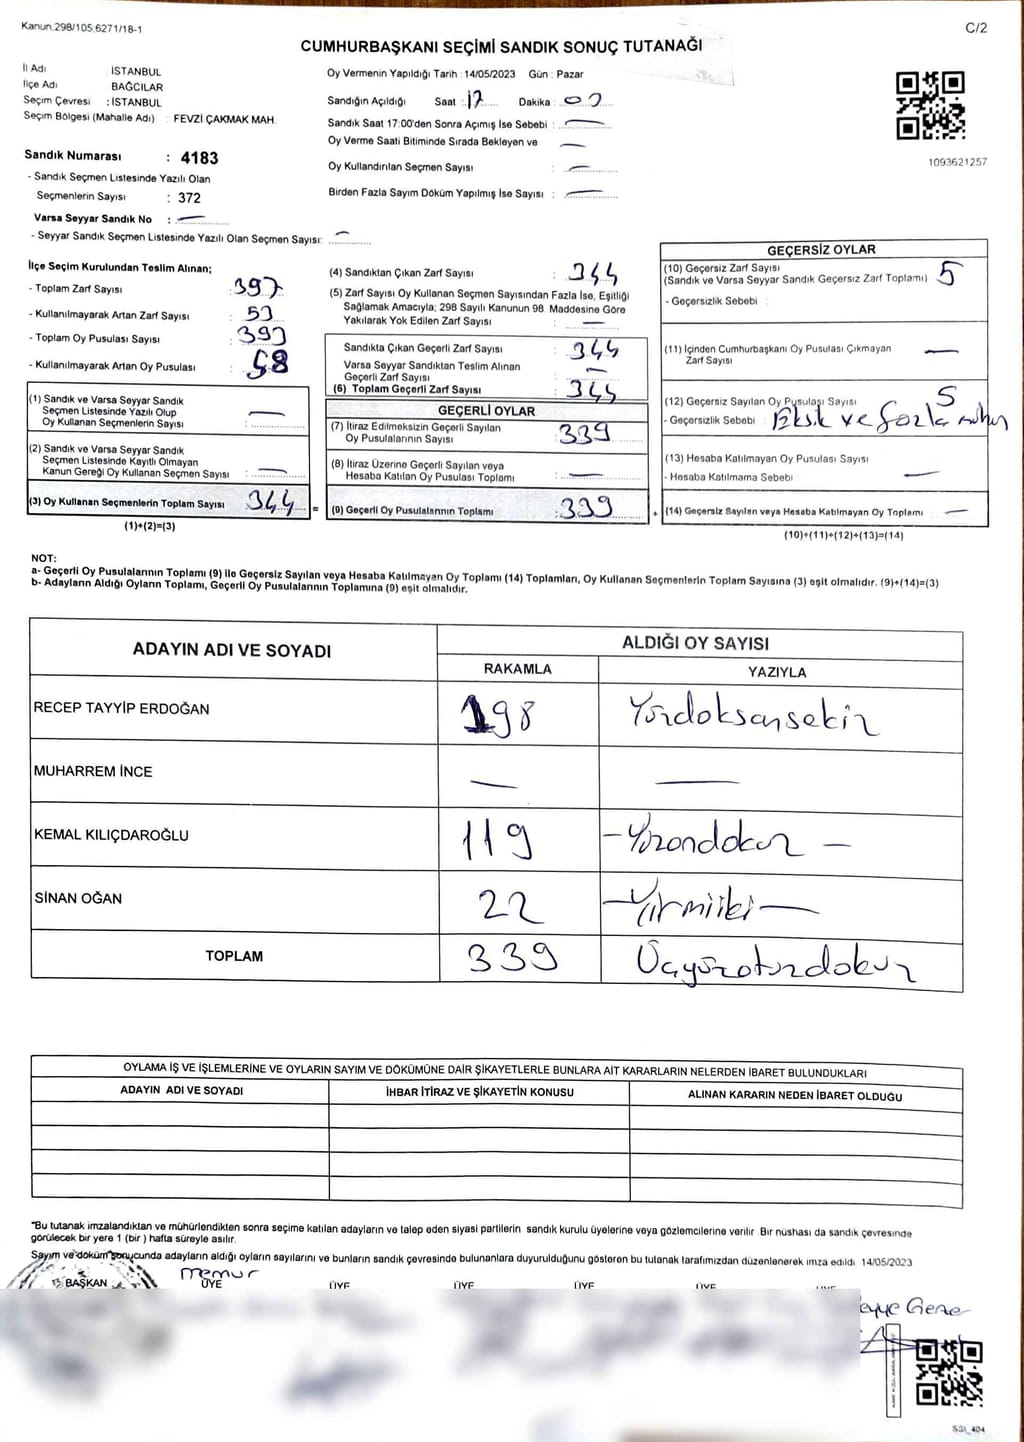 Kanun,298/105,6271/18-1
C/2
CUMHURBAŞKANI SEÇİMİ SANDIK SONUÇ TUTANAĞI
İl Adı : İSTANBUL
İlçe Adı BAĞCILAR
Seçim Çevresi : İSTANBUL
Seçim Bölgesi (Mahalle Adı) : FEVZİ ÇAKMAK MAH.
Sandık Numarası : 4183
- Sandık Seçmen Listesinde Yazılı Olan
Seçmenlerin Sayısı : 372
Varsa Seyyar Sandık No : —
- Seyyar Sandık Seçmen Listesinde Yazılı Olan Seçmen Sayısı: —
Oy Vermenin Yapıldığı Tarih : 14/05/2023 Gün : Pazar
Sandığın Açıldığı Saat : 17 Dakika :
Sandık Saat 17:00'den Sonra Açımış İse Sebebi : —
Oy Verme Saati Bitiminde Sırada Bekleyen ve —
Oy Kullandırılan Seçmen Sayısı : —
Birden Fazla Sayım Döküm Yapılmış İse Sayısı : —
1093621257
İlçe Seçim Kurulundan Teslim Alınan;
- Toplam Zarf Sayısı : 397
- Kullanılmayarak Artan Zarf Sayısı : 53
- Toplam Oy Pusulası Sayısı :
- Kullanılmayarak Artan Oy Pusulası : 58
(1) Sandık ve Varsa Seyyar Sandık
Seçmen Listesinde Yazılı Olup
Oy Kullanan Seçmenlerin Sayısı : —
(2) Sandık ve Varsa Seyyar Sandık
Seçmen Listesinde Kayıtlı Olmayan
Kanun Gereği Oy Kullanan Seçmen Sayısı : —
(3) Oy Kullanan Seçmenlerin Toplam Sayısı 344 =
(1)+(2)=(3)
(4) Sandıktan Çıkan Zarf Sayısı : 344
(5) Zarf Sayısı Oy Kullanan Seçmen Sayısından Fazla İse, Eşitliği
Sağlamak Amacıyla; 298 Sayılı Kanunun 98 Maddesine Göre
Yakılarak Yok Edilen Zarf Sayısı : —
Sandıkta Çıkan Geçerli Zarf Sayısı : 344
Varsa Seyyar Sandıktan Teslim Alınan —
Geçerli Zarf Sayısı :
(6) Toplam Geçerli Zarf Sayısı : 344
GEÇERLİ OYLAR
(7) İtiraz Edilmeksizin Geçerli Sayılan
Oy Pusulalarının Sayısı : 339
(8) İtiraz Üzerine Geçerli Sayılan veya
Hesaba Katılan Oy Pusulası Toplamı : —
(9) Geçerli Oy Pusulalarının Toplamı : 339 +
GEÇERSİZ OYLAR
(10) Geçersiz Zarf Sayısı
(Sandık ve Varsa Seyyar Sandık Geçersiz Zarf Toplamı) : 5
- Geçersizlik Sebebi :
(11) İçinden Cumhurbaşkanı Oy Pusulası Çıkmayan —
Zarf Sayısı
(12) Geçersiz Sayılan Oy Pusulası Sayısı 5
- Geçersizlik Sebebi : Eksik ve fazla mühür
(13) Hesaba Katılmayan Oy Pusulası Sayısı
- Hesaba Katılmama Sebebi : —
(14) Geçersiz Sayılan veya Hesaba Katılmayan Oy Toplamı : —
(10)+(11)+(12)+(13)=(14)
NOT:
a- Geçerli Oy Pusulalarının Toplamı (9) ile Geçersiz Sayılan veya Hesaba Katılmayan Oy Toplamı (14) Toplamları, Oy Kullanan Seçmenlerin Toplam Sayısına (3) eşit olmalıdır. (9)+(14)=(3)
b- Adayların Aldığı Oyların Toplamı, Geçerli Oy Pusulalarının Toplamına (9) eşit olmalıdır.
ADAYIN ADI VE SOYADI
ALDIĞI OY SAYISI
RAKAMLA YAZIYLA
RECEP TAYYİP ERDOĞAN 198 Yüzdoksansekiz
MUHARREM İNCE — —
KEMAL KILIÇDAROĞLU 119 -Yüzondokuz -
SİNAN OĞAN 22 -Yirmiiki-
TOPLAM 339 Üçyüzotuzdokuz
OYLAMA İŞ VE İŞLEMLERİNE VE OYLARIN SAYIM VE DÖKÜMÜNE DAİR ŞİKAYETLERLE BUNLARA AİT KARARLARIN NELERDEN İBARET BULUNDUKLARI
ADAYIN ADI VE SOYADI İHBAR İTİRAZ VE ŞİKAYETİN KONUSU ALINAN KARARIN NEDEN İBARET OLDUĞU
*Bu tutanak imzalandıktan ve mühürlendikten sonra seçime katılan adayların ve talep eden siyasi partilerin sandık kurulu üyelerine veya gözlemcilerine verilir. Bir nüshası da sandık çevresinde
görülecek bir yere 1 (bir ) hafta süreyle asılır.
Sayım ve döküm sonucunda adayların aldığı oyların sayılarını ve bunların sandık çevresinde bulunanlara duyurulduğunu gösteren bu tutanak tarafımızdan düzenlenerek imza edildi. 14/05/2023
memur
BAŞKAN ÜYE ÜYE ÜYE ÜYE ÜYE ÜYE
SSI_404